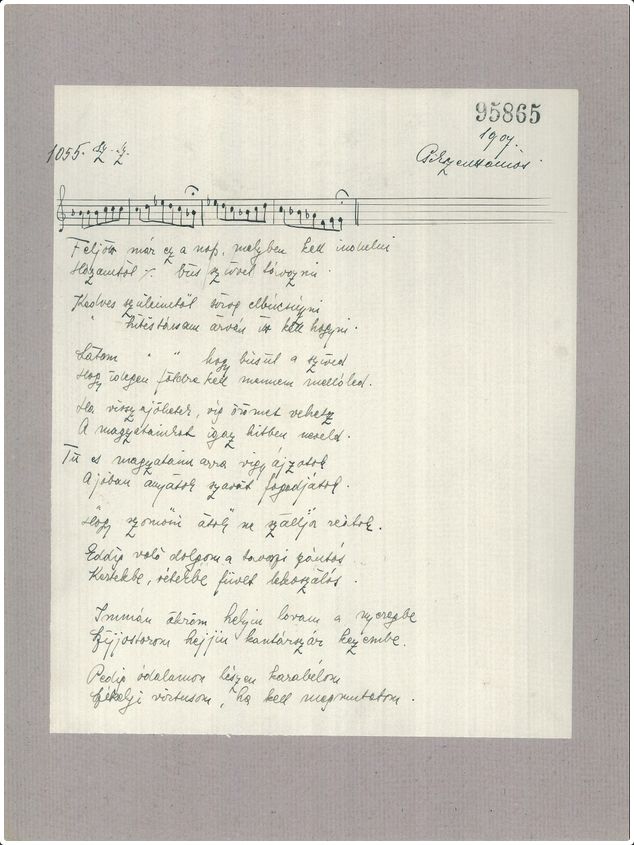 95865
1907.
1055.
Csikszenttamás.
Feljött már ez a nap, melyben kell indulni
Hazámtól ·/· bús szívvel távozni.
Kedves szülémetöl sorog elbúcsúzni
" hitöstársam árván itt kell hogyni.
Látom " " hogy búsúl a szíved
Hogy idegen földre kell mennem mellőled.
Ha visszajöhetek, víg örömet vehetsz
A magzatainkot igaz hitben neveld.
Tü es magzataim arra vigyájzatok
A jóban anyátok szavát fogadjátok.
Hogy szomorú átok ne szálljon reátok.
Eddig való dolgom a tavaszi szántás
Kertekbe, rétekbe füvet lekaszálás.
Immán ökröm helyin lovam a nyeregbe
Szíjjostorom hejjin kantárszár kezembe.
Pedig ódalamon lészen karabélom
Székelji virtusom, ha kell megmutatom.